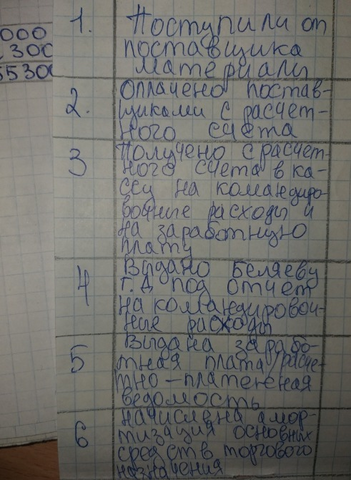 000
300
55300
1. Поступили от
поставщика
материалы
2. Оплачено постав-
щиками с расчет-
ного счета
3 Получено с расчет-
ного счета в ка-
ссу на командиро-
вочные расходы и
на заработную
плату
4 Выдано Беляеву
Г.Д под отчет
на командировоч-
ные расходы
5 Выдана зарабо-
тная плата/расче-
тно-платежная
ведомость
6 начислена амор-
тизация основных
средств торгового
назначения